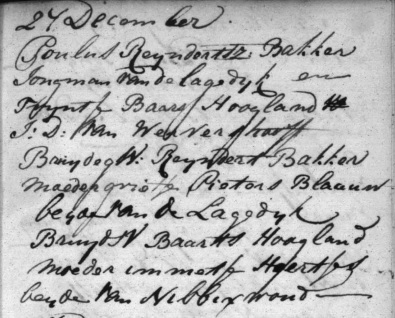 27 December.
Poulus Reynderttz: Bakker
Jongman van de Lagedyk en
Tryntje Baars Hoogland
J: D: Van Wervershooff
Bruydeg V: Reyndert Bakker
moeder grietje Pieters Blaauw
beyde van de Lagedyk
Bruyd V Baarts Hoogland
moeder immetje
beyde van Nibbixwoud